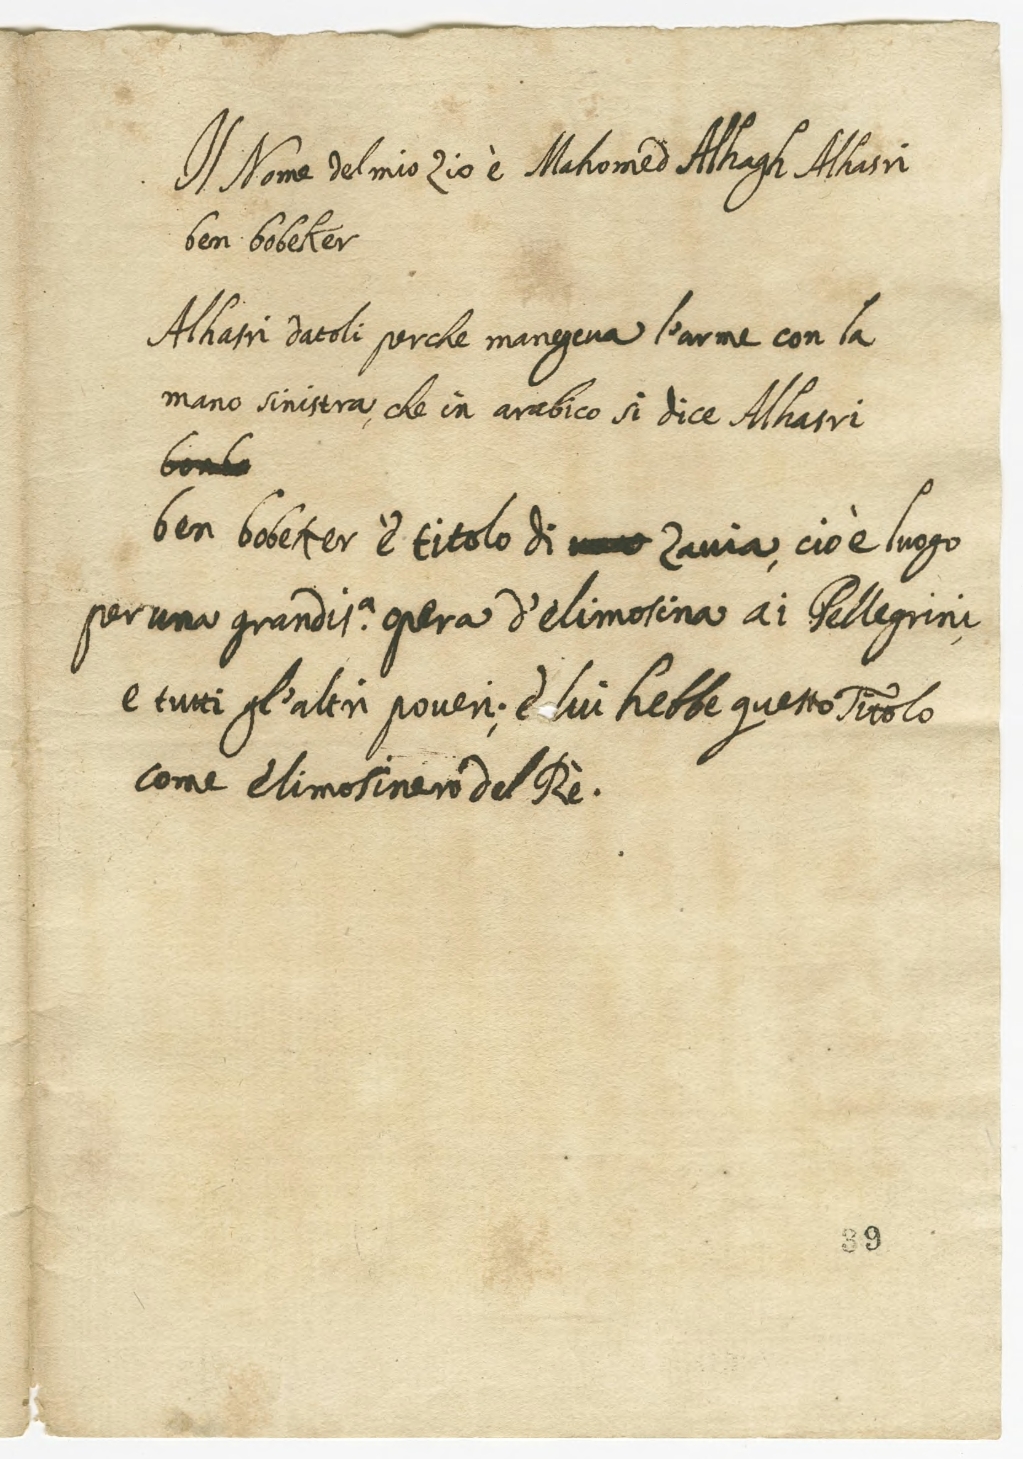 Il Nome del mio Zio è Mahomed Alhagh Alhasri
ben bobeker
Alhasri datoli perche mangeua l'arme con la
mano sinistra, che in arabico si dice Alhasri
ben bobeker è titolo di Zauia, cioè luogo
per una grandis.ª opera d'elimosina ai Pellegrini,
e tutti gl'altri poueri; è lui hebbe questo Titolo
come elimosinero del Rè.
39